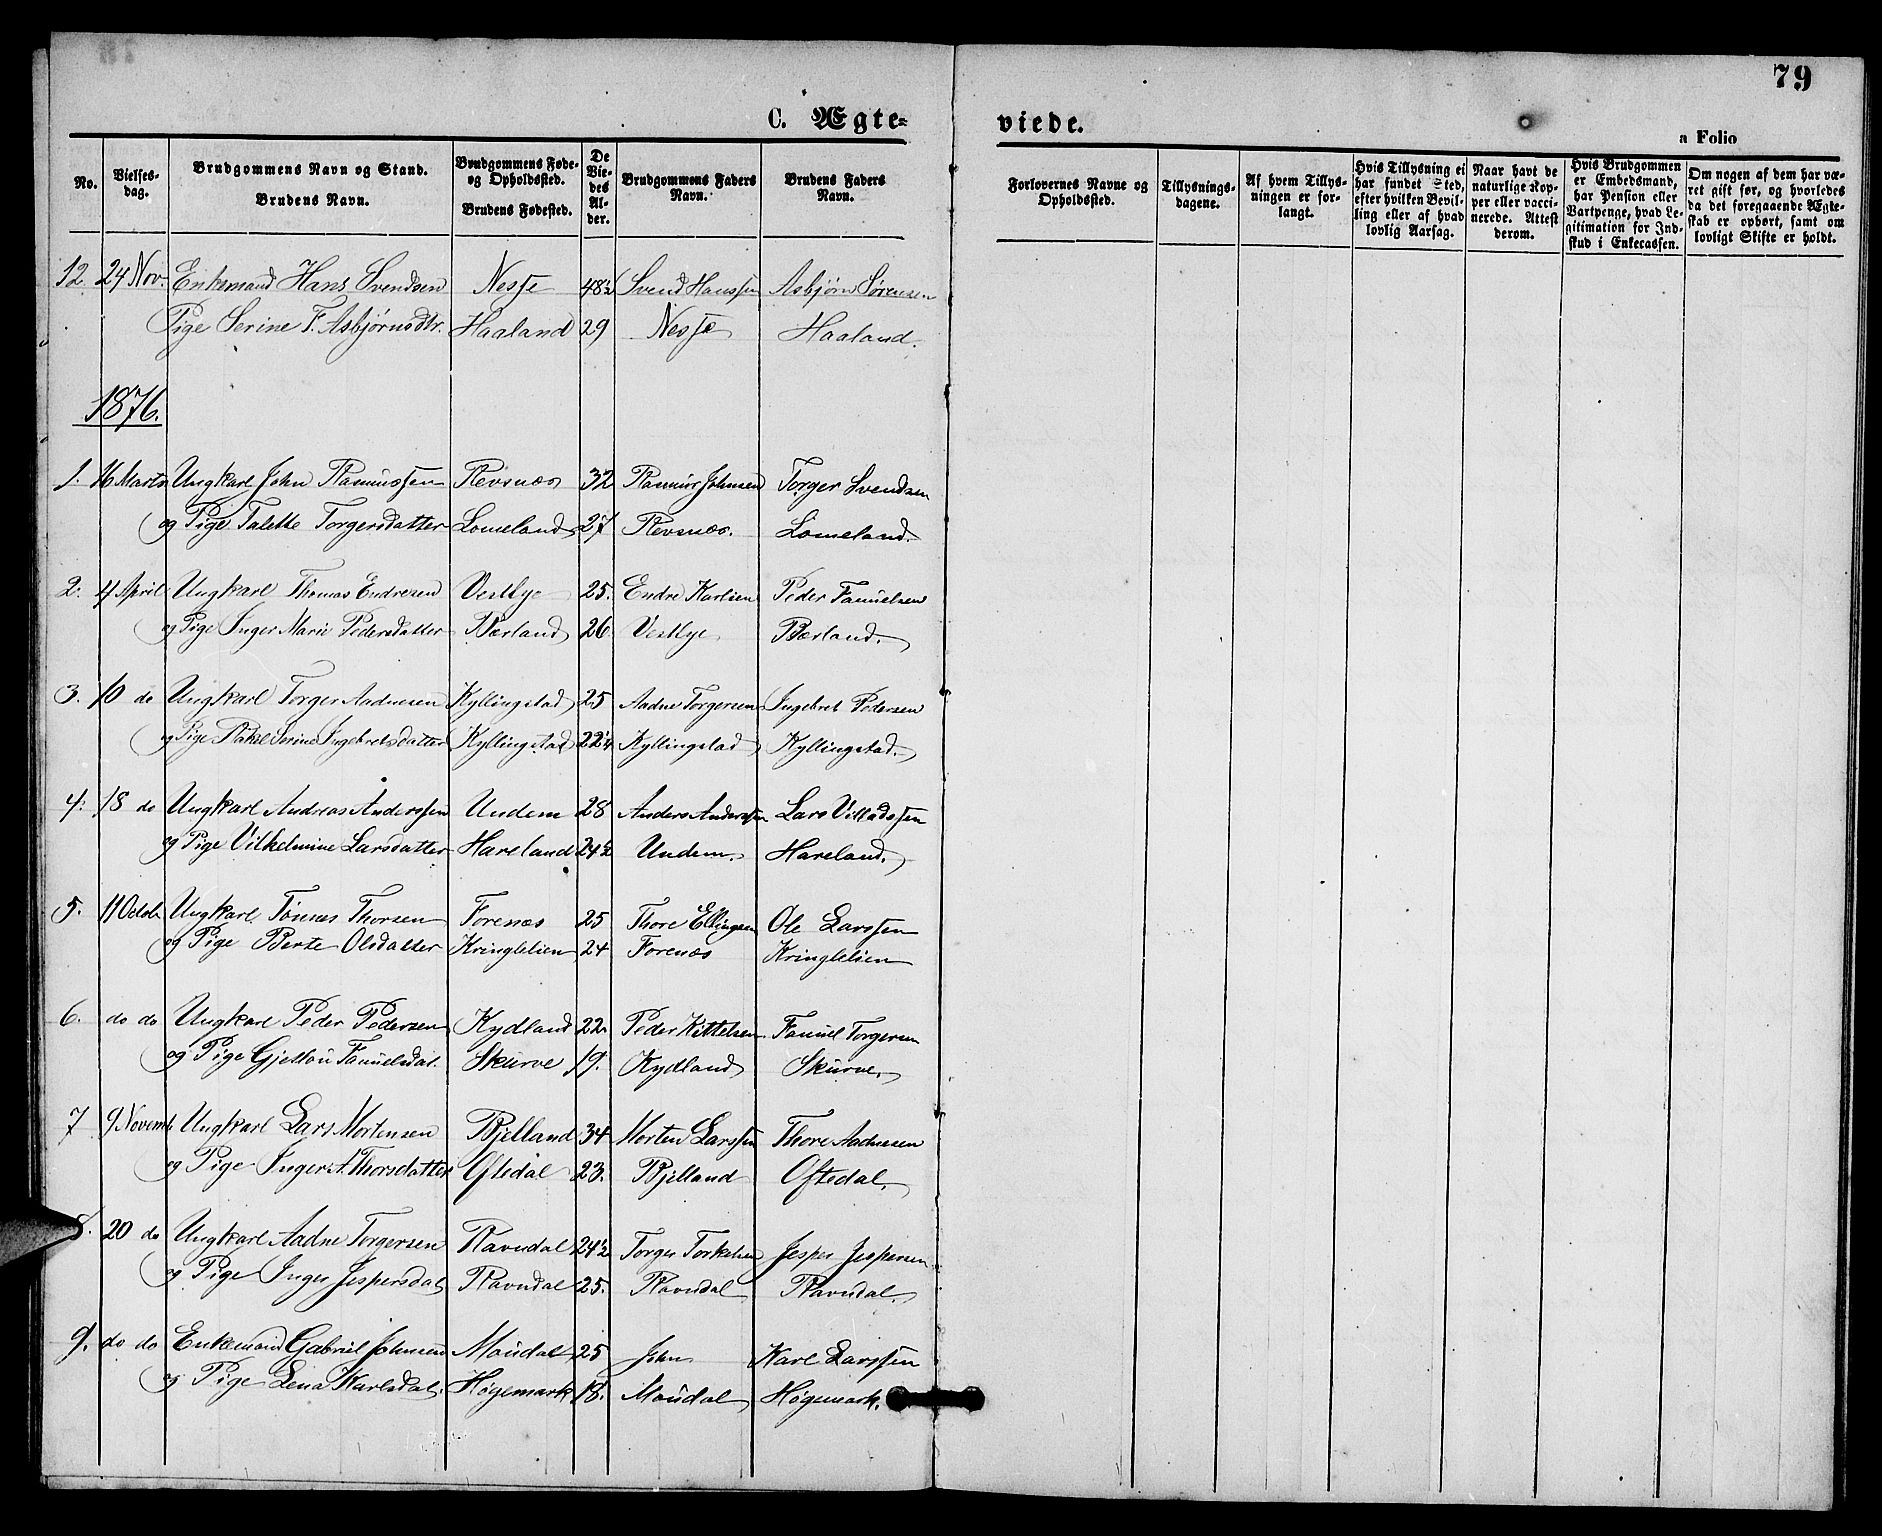 79
C. Ægte= viede.
a Folio
No.
Vielses-dag.
Brudgommens Navn og Stand.
Brudens Navn.
Brudgommens Føde- og Opholdssted.
Brudens Fødested.
De Viedes Alder.
Brudgommens Faders Navn.
Brudens Faders Navn.
Forlovernes Navne og Opholdssted.
Tillysnings-dagene.
Af hvem Tillys-ningen er for-langt.
Hvis Tillysning ei har fundet Sted, efter hvilken Bevil-ling eller af hvad lovlig Aarsag.
Naar havt de naturlige Kop-per eller vacci-nerede. Attest derom.
Hvis Brudgommen er Embedsmand, har Pension eller Vartpenge, hvad Le-gitimation for Ind-skud i Enkecassen.
Om nogen af dem har væ-ret gift før, og hvorledes da det foregaaende Ægte-skab er ophørt, samt om lovligt Skifte er holdt.
12. 24 Nov. Enkemand Hans Svendsen Nesse 48½ Svend Hanssen Asbjørn Sørensen
Pige Serine T. Asbjørnsdtr. Haaland 29 Nesse Haaland.
1876.
1. 16 Marts Ungkarl John Rasmussen Revsnæs 32 Rasmus Johnsen Torger Svendsen
og Pige Talette Torgersdatter Lomeland 27 Revsnæs. Lomeland.
2. 4 April Ungkarl Thomas Endresen Vestbye 25. Endre Karlsen Peder Samuelsen
og Pige Inger Marie Pedersdatter Bærland 26 Vestbye Bærland.
3. 10 do Ungkarl Torger Aadnesen Kyllingstad 25 Aadne Torgersen Ingebret Pedersen
og Pige Rakel Serine Ingebretsdatter Kyllingstad 22¼ Kyllingstad Kyllingstad.
4. 18 do Ungkarl Andreas Anderssen Undem 28 Anders Anderssen Lars Villadssen
og Pige Vilhelmine Larsdatter Hareland 24½ Undem. Hareland.
5. 11 Octob. Ungkarl Tønnes Thorsen Forenæs 25 Thore Ellingsen Ole Larssen
og Pige Berte Olsdatter Kringlelien 24 Forenæs Kringlelien
6. do do Ungkarl Peder Pedersen Kydland 22 Peder Kittelsen Samuel Torgersen
og Pige Gjellou Samuelsdat. Skurve 19. Kydland Skurve.
7 9 Novemb Ungkarl Lars Mortensen Bjelland 34 Morten Larssen Thore Aadnesen
og Pige Inger A. Thorsdatter Oftedal 23. Bjelland Oftedal.
8. 20 do Ungkarl Aadne Torgersen Ravndal 24½ Torger Torkelsen Jesper Jespersen
og Pige Inger Jespersdat Ravndal 25. Ravndal Ravndal.
9. do do Enkemand Gabriel Johnsen Maudal 25 John Karl Larssen
og Pige Lena Karlsdat. Høgemark 18. Maudal Høgemark.